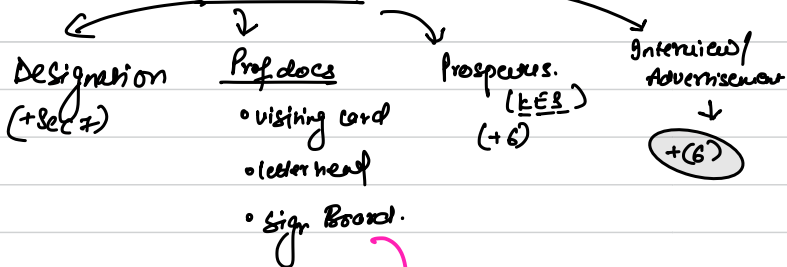 Designation
(+Sec 7)
Prof docs
• visiting card
• letterhead
• Sign Board.
Prospectus.
(KEB)
(+6)
Interview/
Advertisement
+(6)